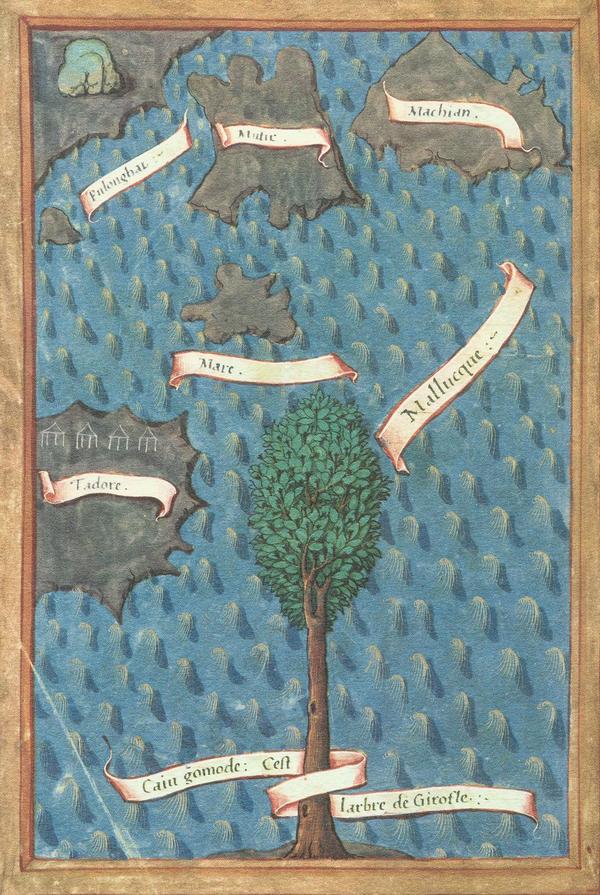 Pulonghai.
Mutir.
Machian.
Mare.
Mallucque:~
Tadore.
Caiu gomode: Cest
larbre de Girofle.:~